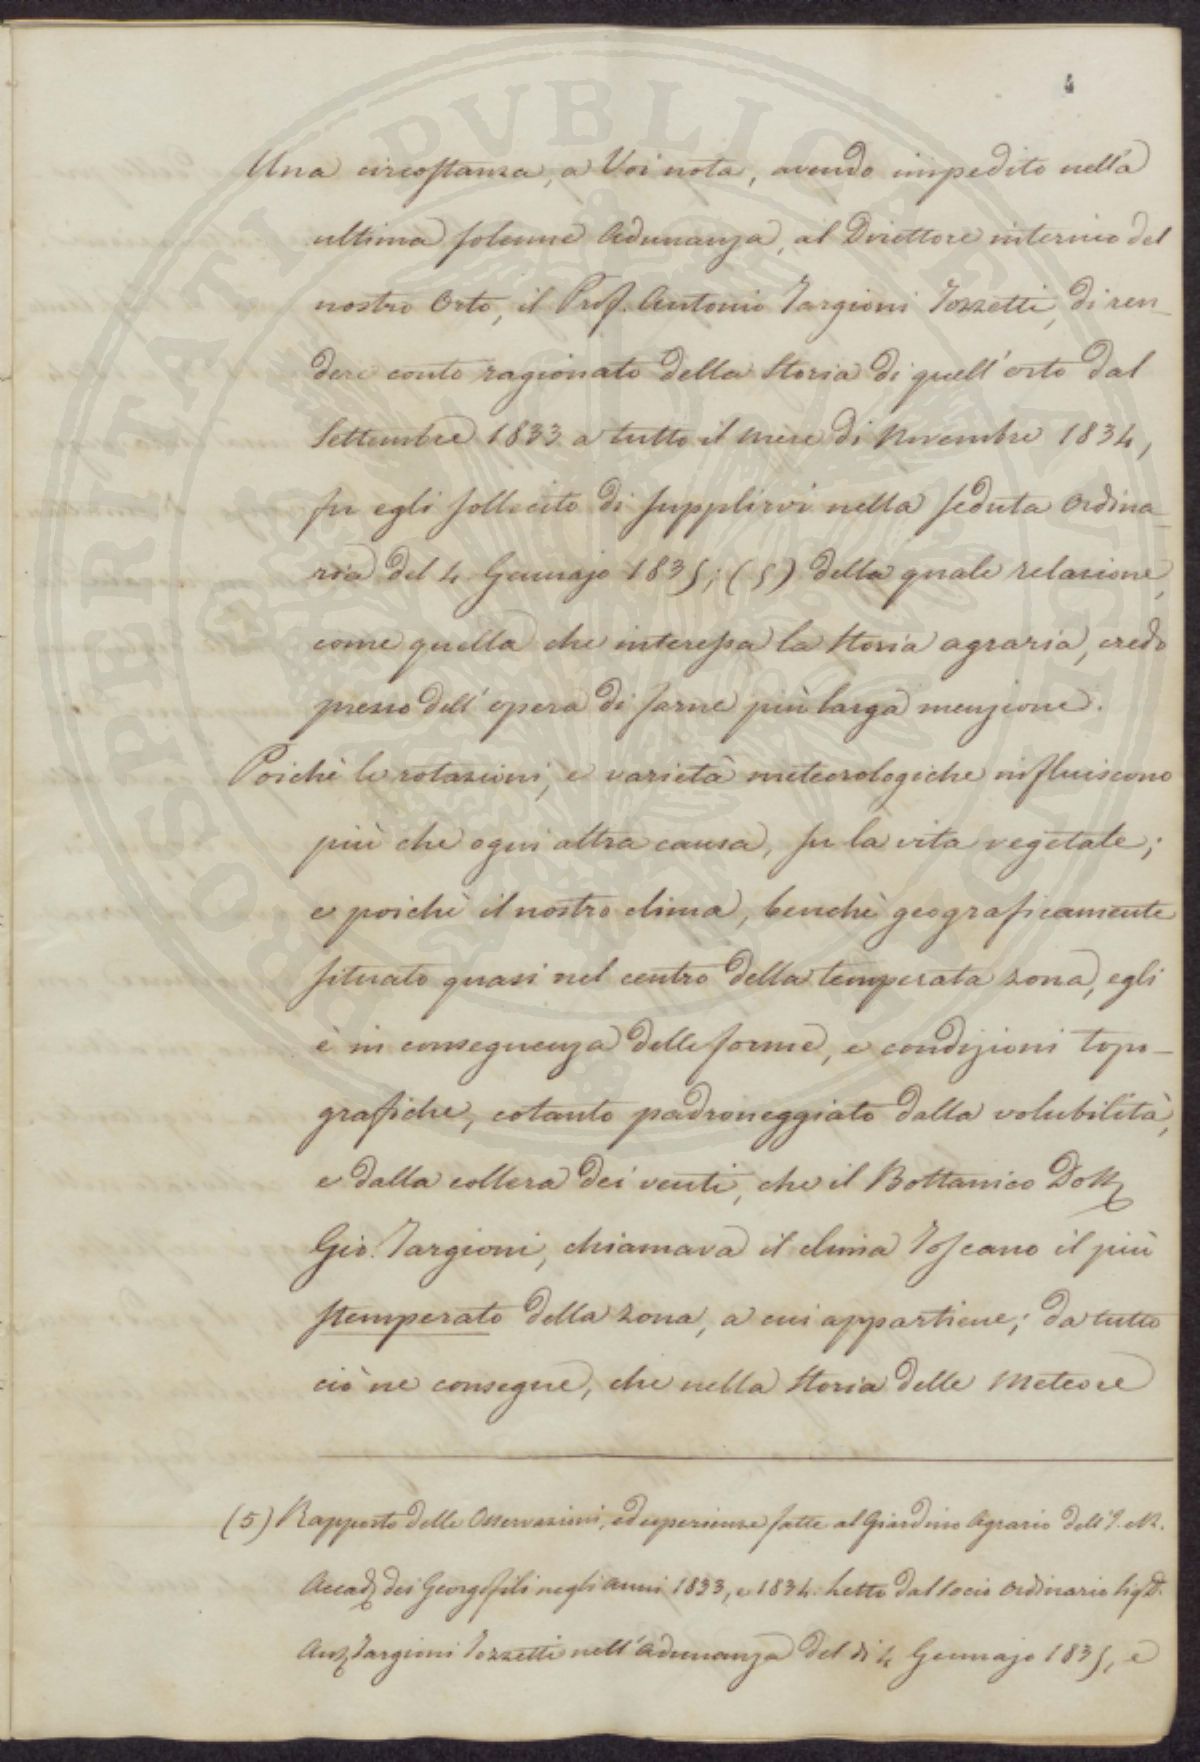 4
Una circostanza, a Voi nota, avendo impedito nella
ultima solenne Adunanza, al Direttore interino del
nostro Orto, il Prof. Antonio Targioni Tozzetti, di ren-
dere conto ragionato della Storia di quell'orto dal
Settembre 1833 a tutto il mese di Novembre 1834,
fu egli sollecito di supplirvi nella seduta Ordina-
ria del 4 Gennajo 1835; (5) della quale relazione,
come quella che interessa la Storia agraria, credo
prezzo dell'opera di farne più larga menzione.
Poichè le rotazioni, e varietà meteorologiche influiscono
più che ogni altra causa, su la vita vegetale;
e poichè il nostro clima, benchè geograficamente
situato quasi nel centro della temperata zona, egli
è in conseguenza delle forme, e condizioni topo-
grafiche, cotanto padroneggiato dalla volubilità,
e dalla collera dei venti, che il Bottanico Dott.
Gio. Targioni, chiamava il clima Toscano il più
stemperato della zona, a cui appartiene; da tutto
ciò ne consegue, che nella Storia delle Meteore
(5) Rapporto delle Osservazioni, ed esperienze fatte al Giardino Agrario dell'I. e R.
Accad. dei Georgofili negli anni 1833, e 1834. Letto dal Socio Ordinario Sig. D.
Ant. Targioni Tozzetti nell'Adunanza del di 4 Gennajo 1835, e
PROSPERITATI PVBLICAE AVGENDAE